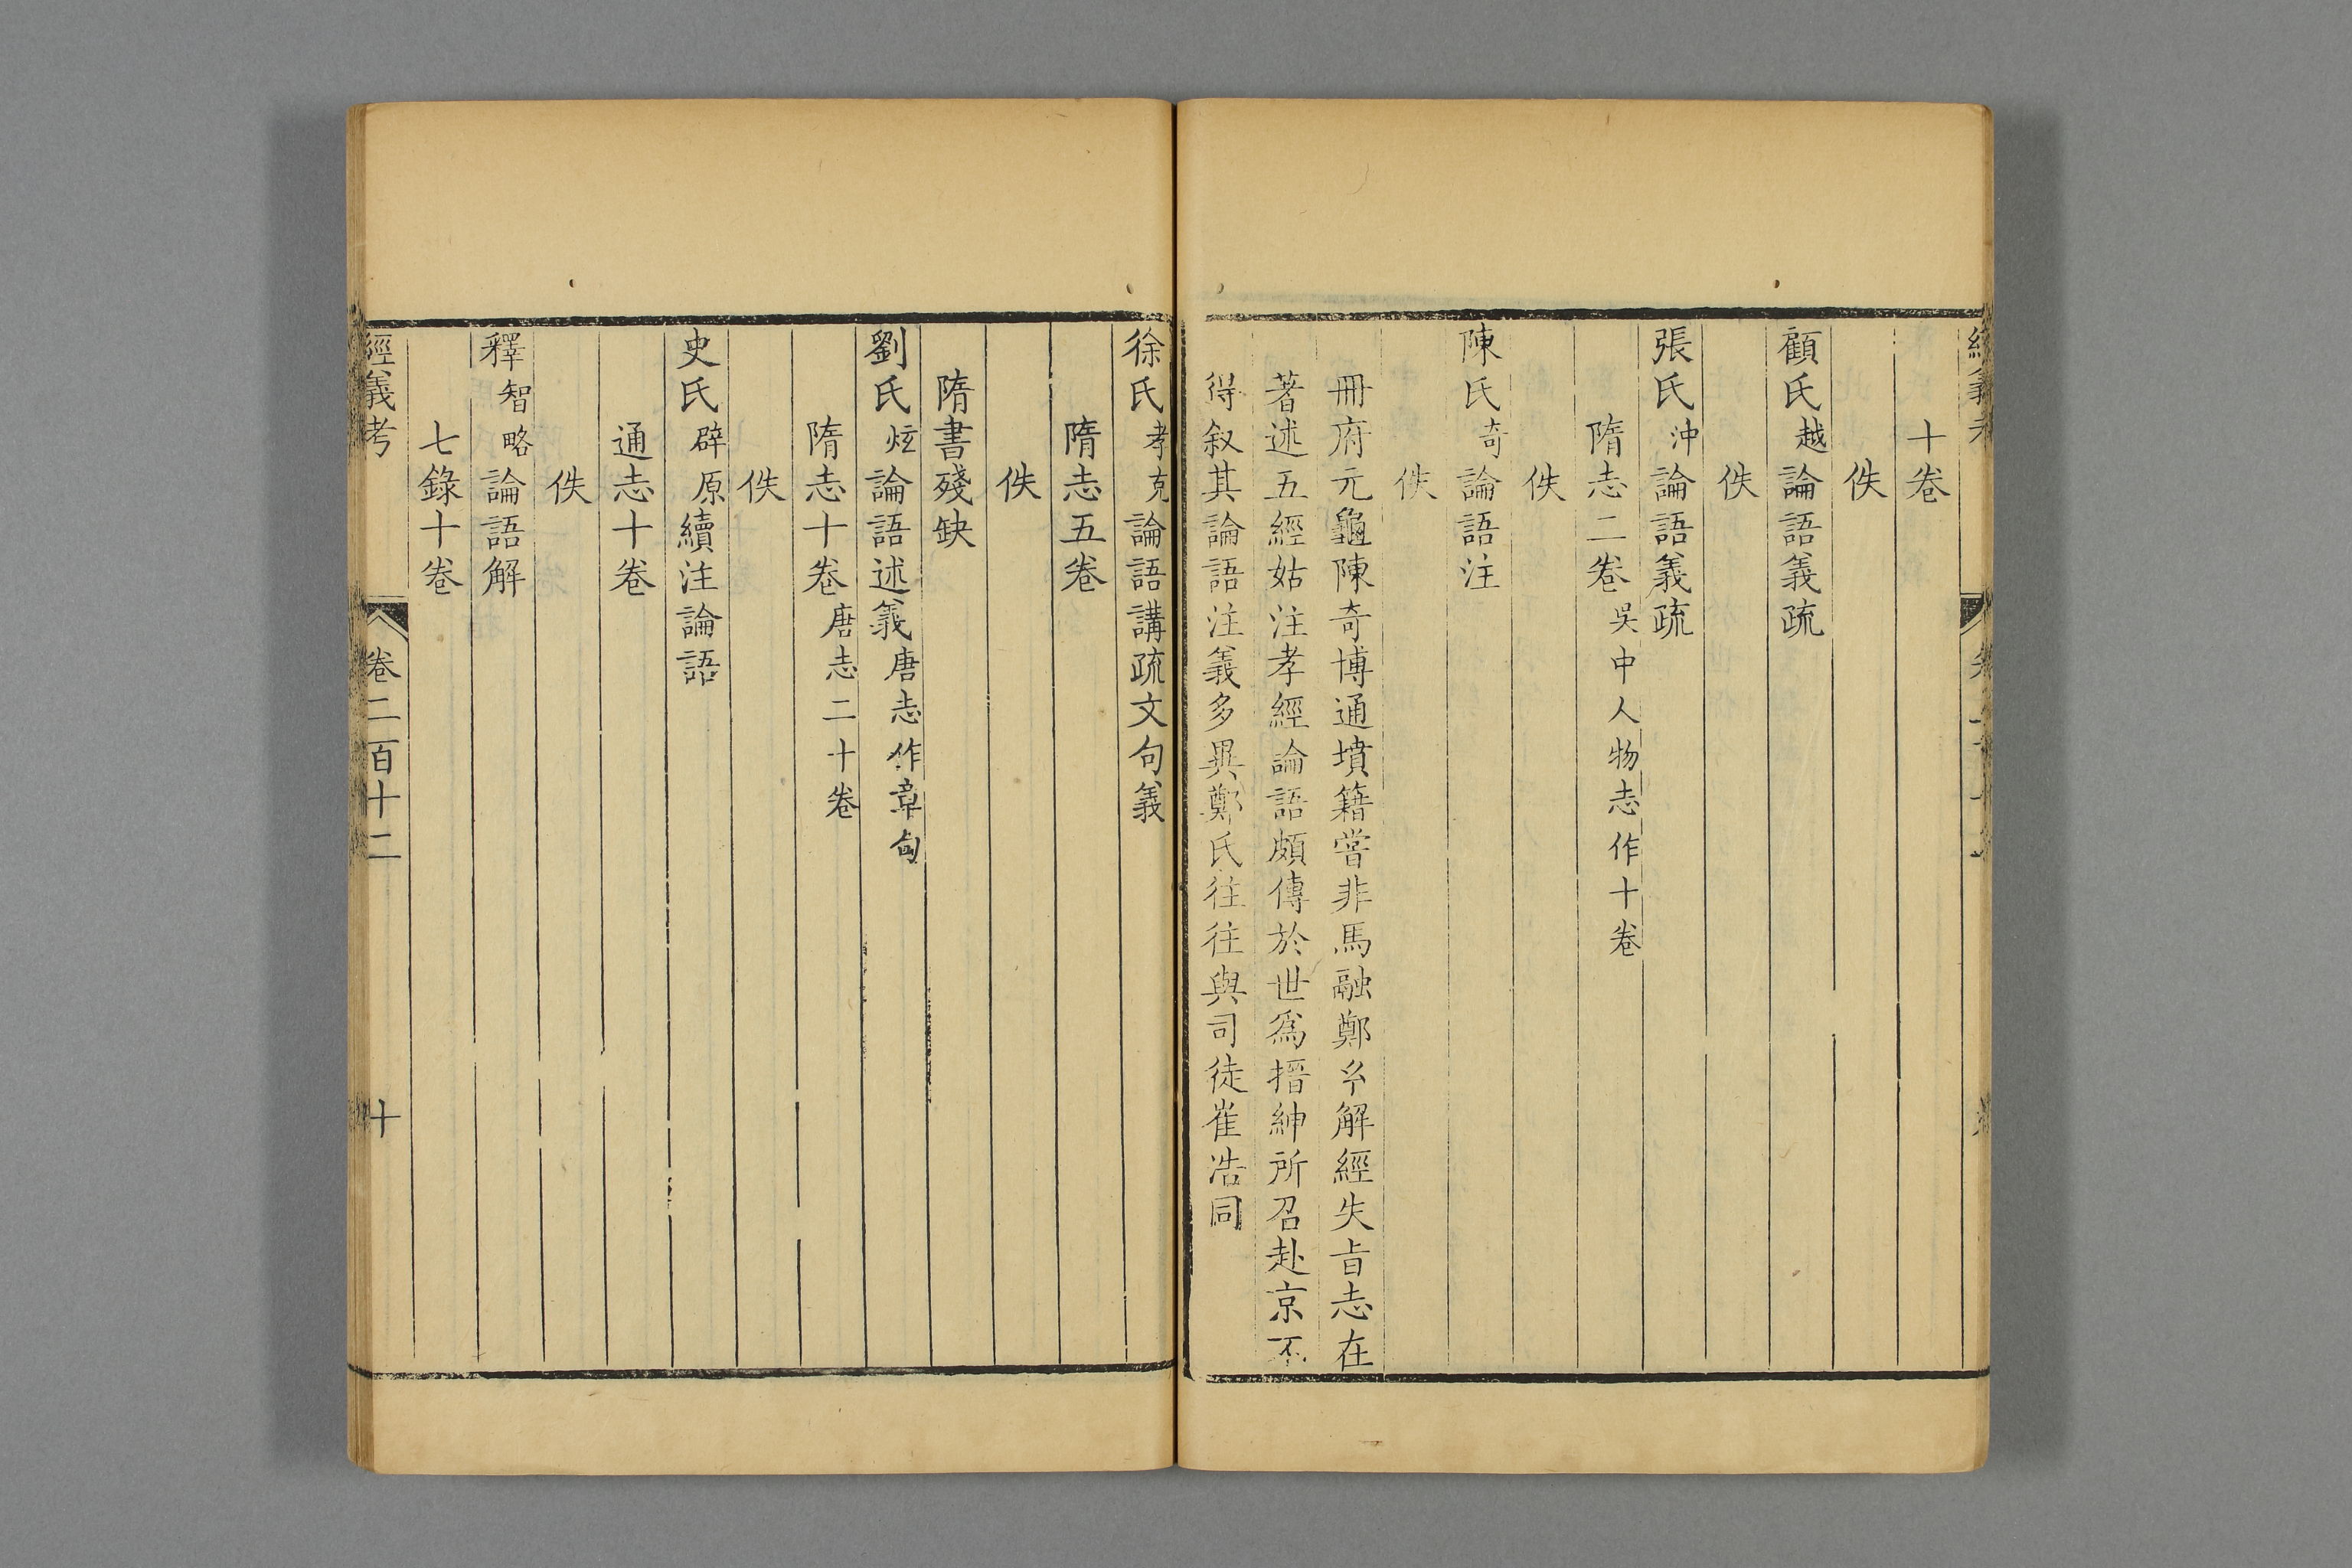 十卷
佚
顧氏越論語義疏
佚
張氏沖論語義疏
隋志二卷吳中人物志作十卷
佚
陳氏奇論語注
佚
冊府元龜陳奇博通墳籍嘗非馬融鄭玄解經失旨志在
著述五經姑注孝經論語頗傳於世爲搢紳所召赴京不
得叙其論語注義多異鄭氏往往與司徒崔浩同
徐氏孝克論語講疏文句義
隋志五卷
佚
隋書殘缺
劉氏炫論語述義唐志作章句
隋志十卷唐志二十卷
佚
史氏辟原續注論語
通志十卷
佚
釋智略論語解
七錄十卷
經義考 卷二百十二 十